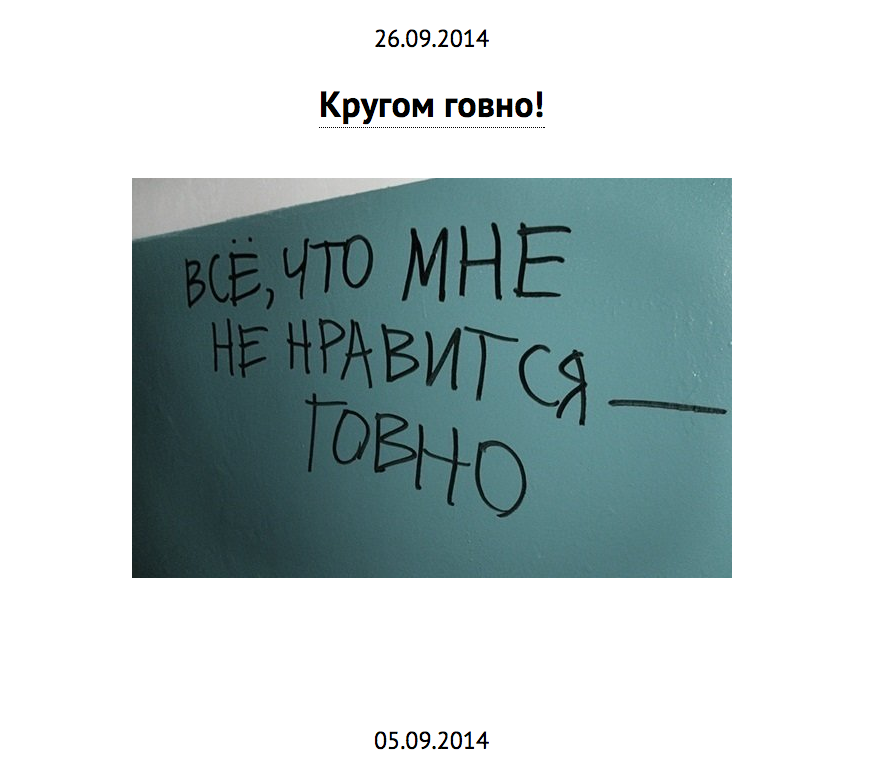 26.09.2014
Кругом говно!
ВСЁ, ЧТО МНЕ
НЕ НРАВИТСЯ —
ГОВНО
05.09.2014